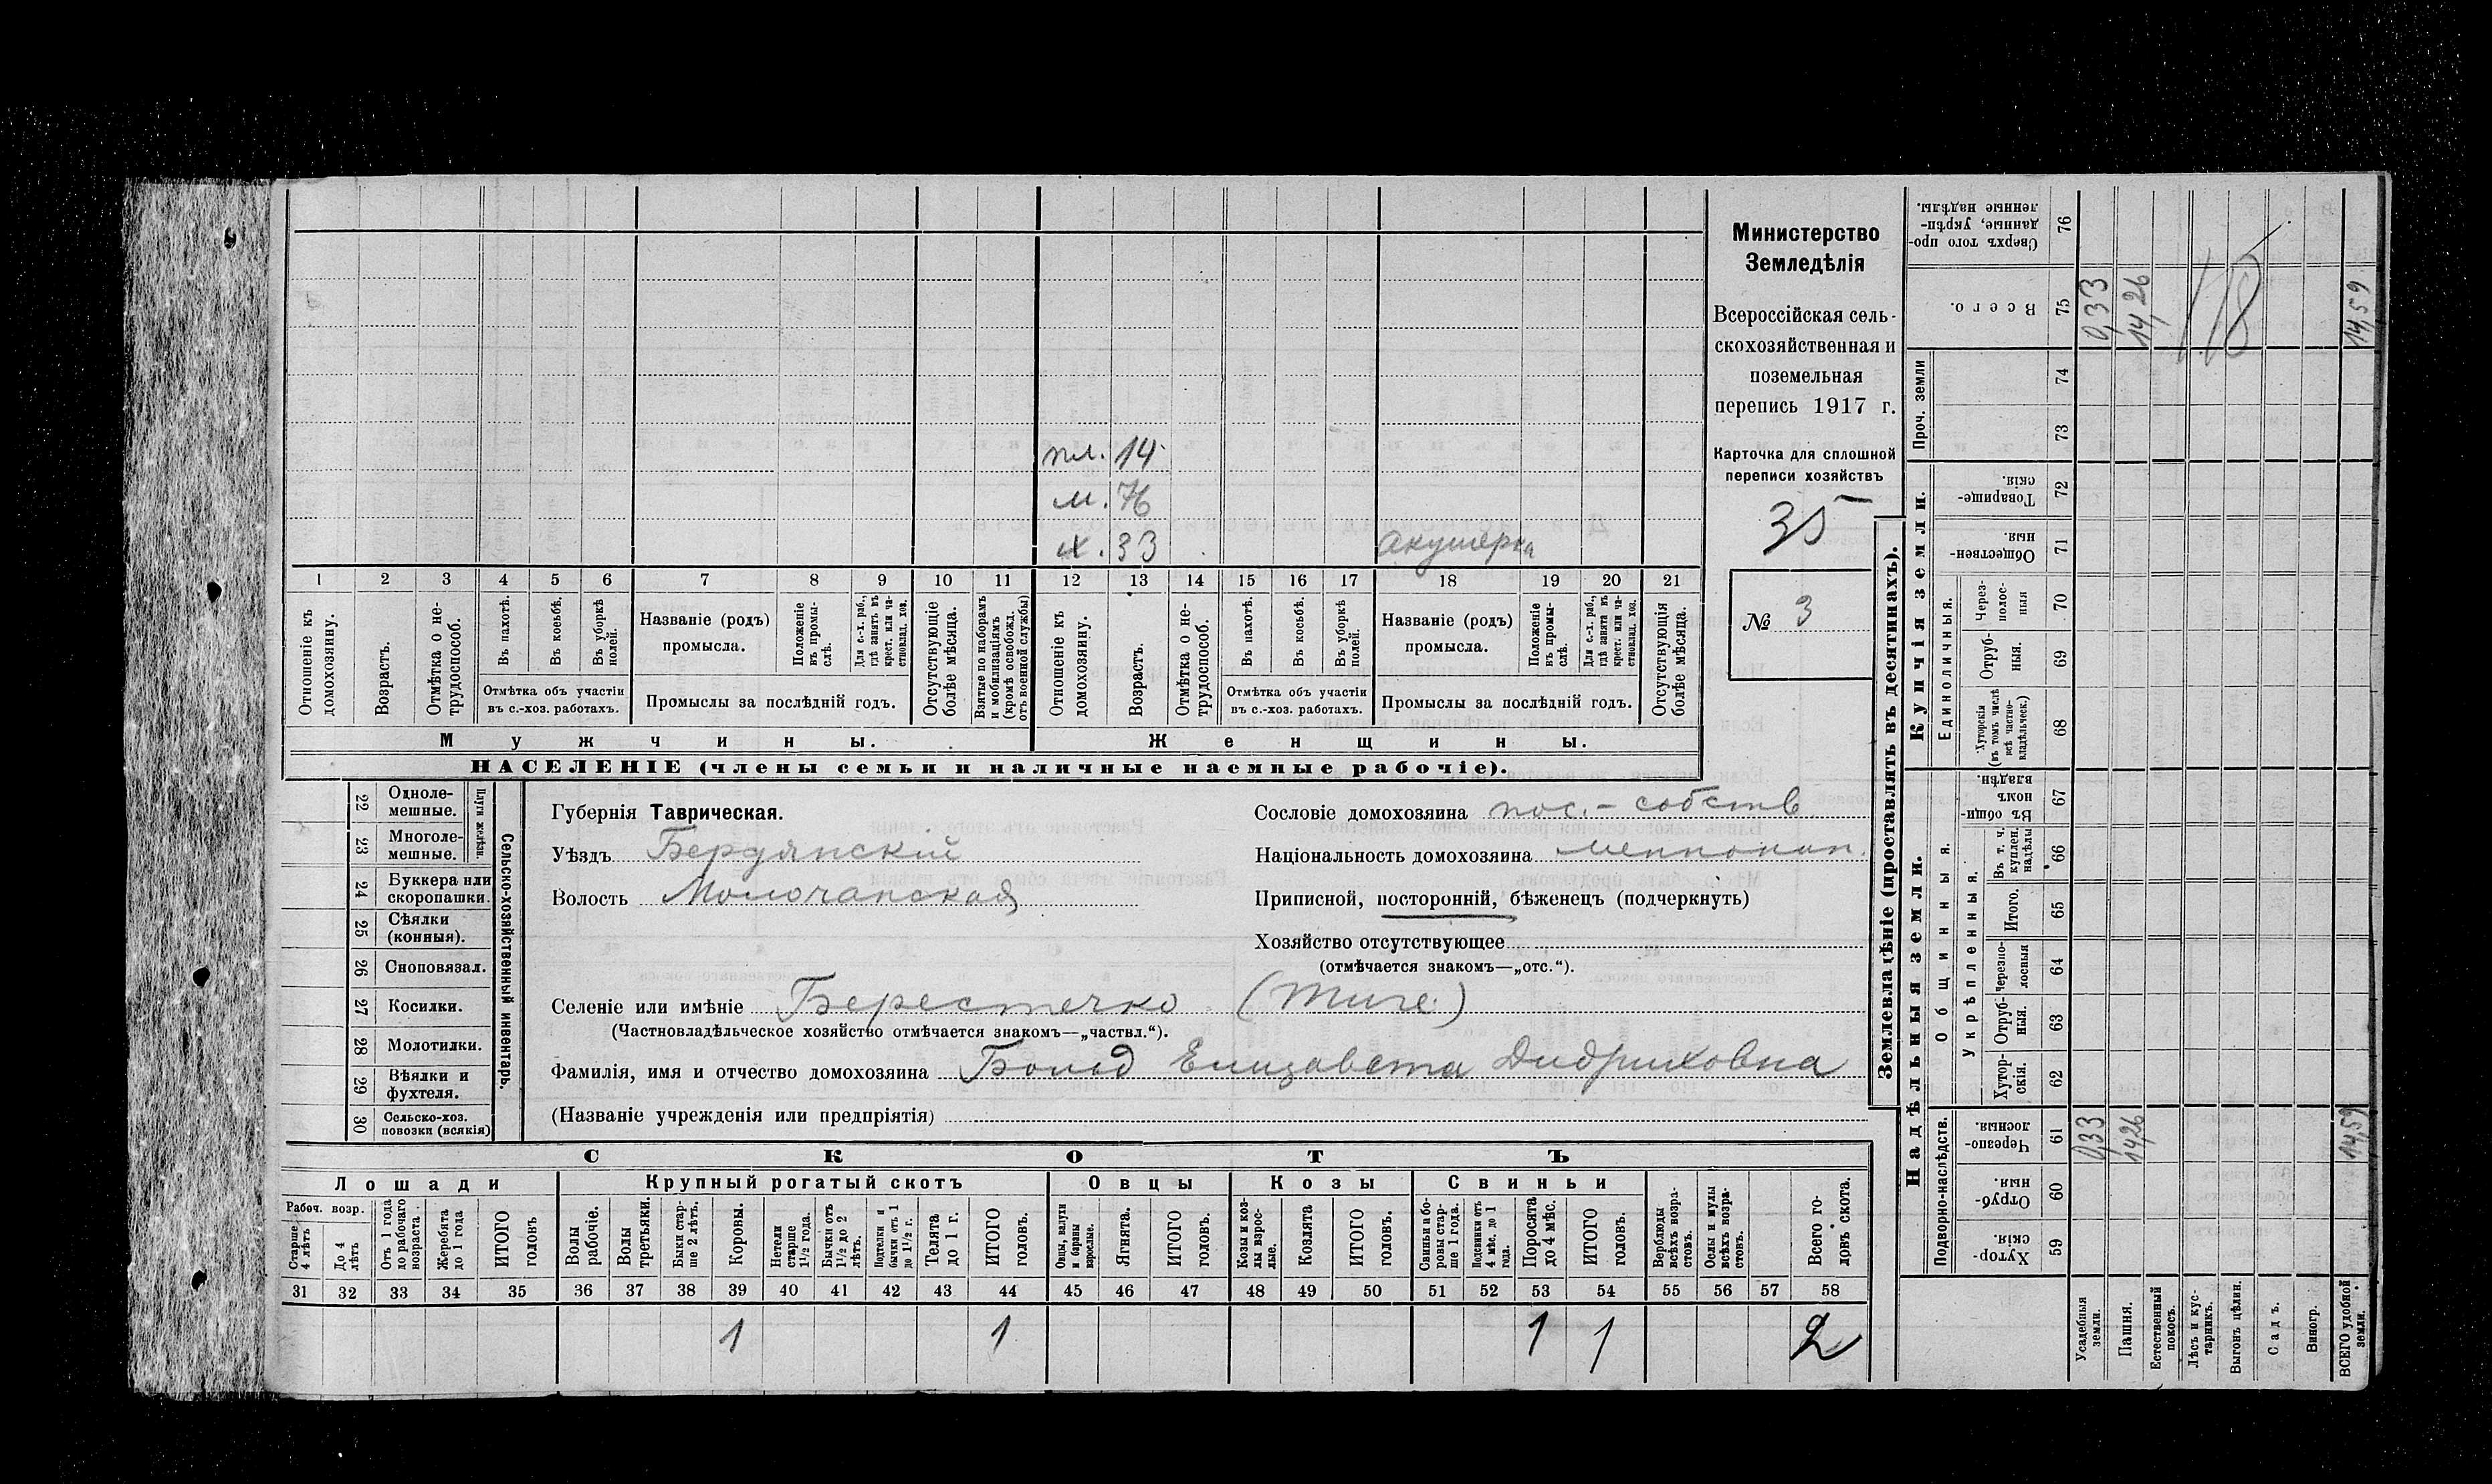 пл. 14
м. 76
х. 33 акушерка
1 2 3 4 5 6 7 8 9 10 11 12 13 14 15 16 17 18 19 20 21
Отношеніе къ домохозяину.
Возрастъ.
Отмѣтка о не-трудоспособ.
Въ пахотѣ.
Въ косьбѣ.
Въ уборкѣ полей.
Отмѣтка объ участіи
въ с.-хоз. работахъ.
Названіе (родъ)
промысла.
Положеніе въ промы-слѣ.
Для с.-х. раб., гдѣ занятъ въ крест. или ча-стновлад. хоз.
Промыслы за послѣдній годъ.
Отсутствующіе болѣе мѣсяца.
Взятые по наборамъ и мобилизаціямъ (кромѣ освобожд. отъ военной службы)
Отношеніе къ домохозяину.
Возрастъ.
Отмѣтка о не-трудоспособ.
Въ пахотѣ.
Въ косьбѣ.
Въ уборкѣ полей.
Отмѣтка объ участіи
въ с.-хоз. работахъ.
Названіе (родъ)
промысла.
Положеніе въ промы-слѣ.
Для с.-х. раб., гдѣ занята въ крест. или ча-стновлад. хоз.
Промыслы за послѣдній годъ.
Отсутствующія болѣе мѣсяца.
Мужчины. Женщины.
НАСЕЛЕНІЕ (члены семьи и наличные наемные рабочіе).
Министерство
Земледѣлія
Всероссійская сель-
скохозяйственная и
поземельная
перепись 1917 г.
Карточка для сплошной
переписи хозяйствъ
35
№ 3
22 Одноле-мешные.
23 Многоле-мешные.
Плуги желѣзн.
24 Буккера или скоропашки.
25 Сѣялки (конныя).
26 Сноповязал.
27 Косилки.
28 Молотилки.
29 Вѣялки и фухтеля.
30 Сельско-хоз. повозки (всякія)
Сельско-хозяйственный инвентарь.
Губернія Таврическая.
Уѣздъ Бердянскій
Волость Молочанская
Сословіе домохозяина пос.-собств
Національность домохозяина меннонит.
Приписной, посторонній, бѣженецъ (подчеркнуть)
Хозяйство отсутствующее
(отмѣчается знакомъ—„отс.“).
Селеніе или имѣніе Берестечко (Тиге)
(Частновладѣльческое хозяйство отмѣчается знакомъ—„частвл.“).
Фамилія, имя и отчество домохозяина Больд Елизавета Дидриховна
(Названіе учрежденія или предпріятія)
СКОТЪ
Лошади Крупный рогатый скотъ Овцы Козы Свиньи
Рабоч. возр.
Старше 4 лѣтъ
До 4 лѣтъ
Отъ 1 года до рабочаго возраста
Жеребята до 1 года
ИТОГО головъ
Волы рабочіе.
Волы третьяки.
Быки стар-ше 2 лѣтъ.
Коровы.
Нетели старше 1½ года.
Бычки отъ 1½ до 2 лѣтъ.
Подтелки и бычки отъ 1 до 1½ г.
Телята до 1 г.
ИТОГО головъ.
Овцы, валухи и бараны взрослые.
Ягнята.
ИТОГО головъ.
Козы и коз-лы взрос-лые.
Козлята
ИТОГО головъ.
Свиньи и бо-ровы стар-ше 1 года.
Подсвинки отъ 4 мѣс. до 1 года.
Поросята до 4 мѣс.
ИТОГО головъ.
Верблюды всѣхъ возра-стовъ.
Ослы и мулы всѣхъ возра-стовъ.
Всего го-ловъ скота.
31 32 33 34 35 36 37 38 39 40 41 42 43 44 45 46 47 48 49 50 51 52 53 54 55 56 57 58
1 1 1 1 2
Землевладѣніе (проставлять въ десятинахъ).
Надѣльныя земли.
Купчія земли.
Проч. земли
Подворно-наслѣдств.
Общинныя.
Укрѣпленныя.
Единоличныя.
Хутор-скія. 59
Отруб-ныя. 60
Черезпо-лосныя. 61
Хутор-скія. 62
Отруб-ныя. 63
Черезпо-лосныя 64
Итого. 65
Въ т. ч. куплен. надѣлы 66
Въ общин-номъ владѣн. 67
Хуторскія (въ томъ числѣ всѣ частно-владѣльческ.) 68
Отруб-ныя. 69
Через-полос-ныя 70
Обществен-ныя. 71
Товарище-скія. 72
73
74
Всего. 75
Сверхъ того про-данные, укрѣп-ленные надѣлы. 76
Усадебныя земли. 0,33 0,33
Пашня. 14,26 14,26
Естественный покосъ.
Лѣсъ и кус-тарникъ.
Выгонъ цѣлин.
Садъ.
Виногр.
ВСЕГО удобной земли. 14,59 14,59